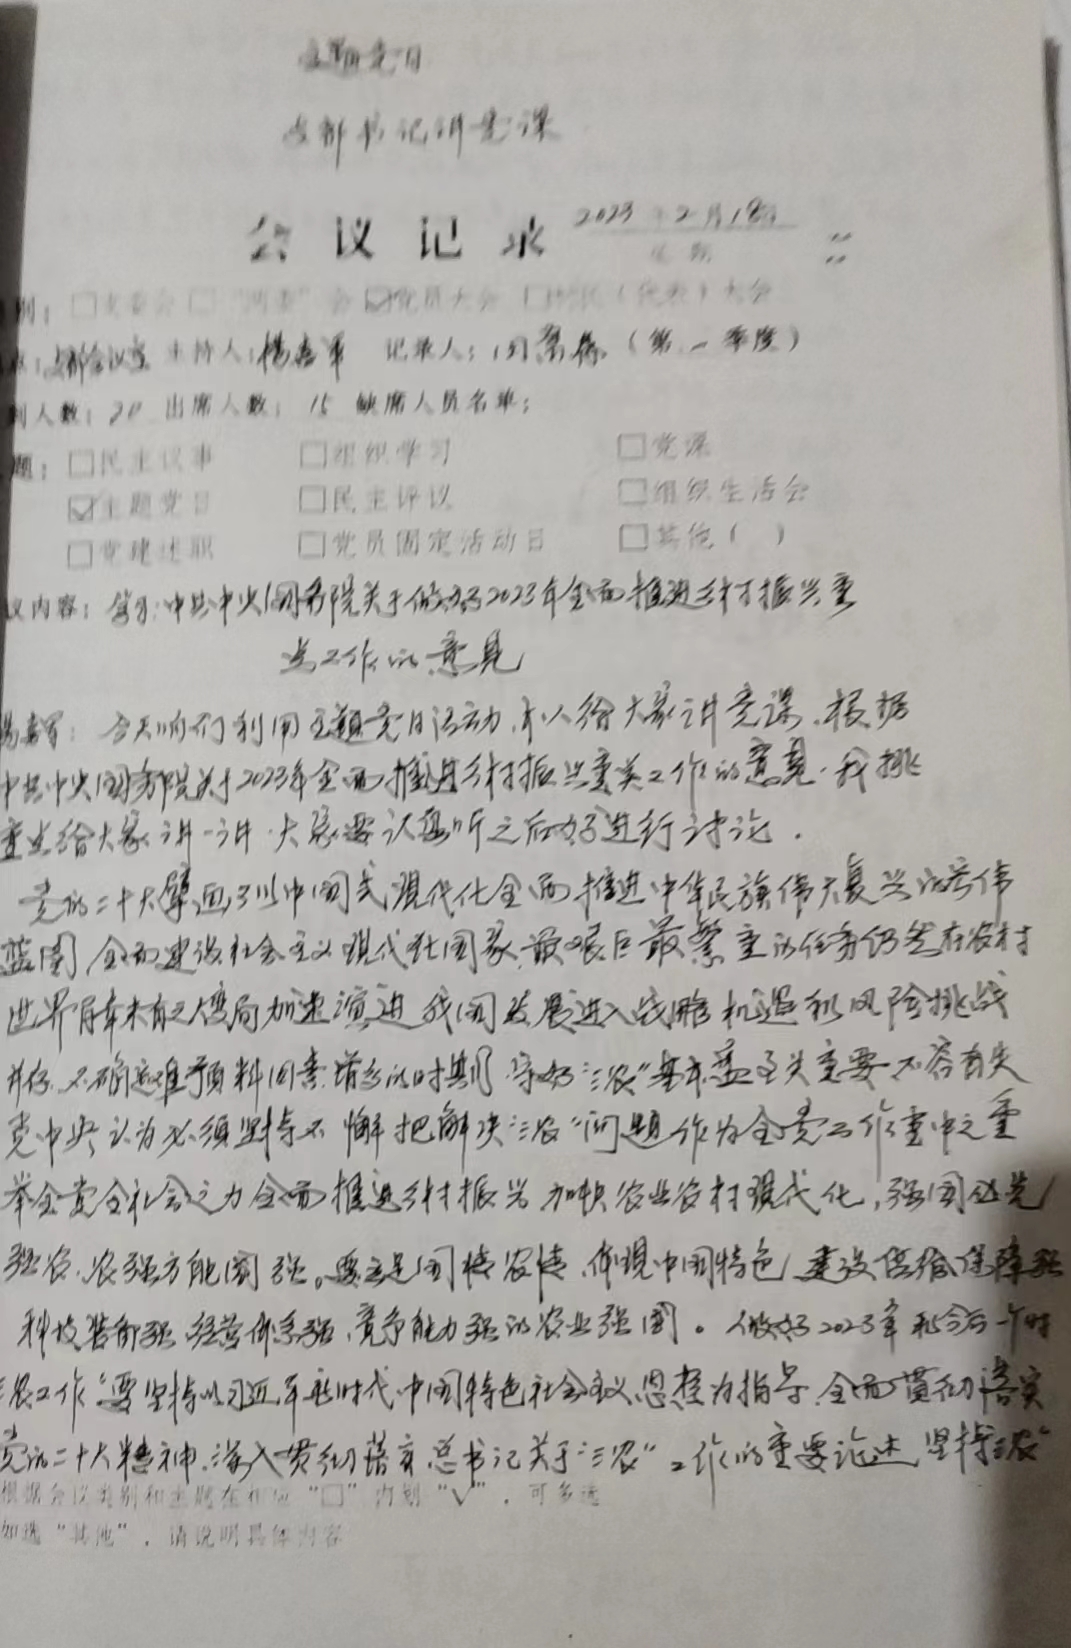 主题党日
支部书记讲党课
会议记录 2023年2月18日
星期
别：□支委会 □“两委”会 ☑党员大会 □村民（代表）大会
点：支部会议室 主持人：杨 军 记录人： （第一季度）
到人数：20 出席人数：15 缺席人员名单：
题：□民主议事 □组织学习 □党课
☑主题党日 □民主评议 □组织生活会
□党建述职 □党员固定活动日 □其他（ ）
议内容：学习：中共中央国务院关于做好2023年全面推进乡村振兴重
点工作的意见
军：今天咱们利用主题党日活动，给大家讲党课，根据
中共中央国务院关于2023年全面推进乡村振兴重点工作的意见，我挑
重点给大家讲一讲，大家要认真听之后好进行讨论．
党的二十大擘画了以中国式现代化全面推进中华民族伟大复兴的宏伟
蓝图 全面建设社会主义现代化国家，最艰巨最繁重的任务仍然在农村
世界百年未有之大变局加速演进 我国发展进入战略机遇和风险挑战
并存，不确定难预料因素增多的时期，守好“三农”基本盘至关重要 不容有失
党中央认为必须坚持不懈把解决“三农”问题作为全党工作重中之重
举全党全社会之力全面推进乡村振兴 加快农业农村现代化，强国必先
强农，农强方能国强。要立足国情农情，体现中国特色，建设供给保障强
科技装备强 经营体系强、竞争能力强的农业强国。做好2023年和今后一个时
三农工作“要坚持以习近平新时代中国特色社会主义思想为指导，全面贯彻落实
党的二十大精神，深入贯彻落实总书记关于“三农”工作的重要论述，坚持三农”
根据会议类别和主题在相应“□”内划“√”，可多选
如选“其他”，请说明具体内容